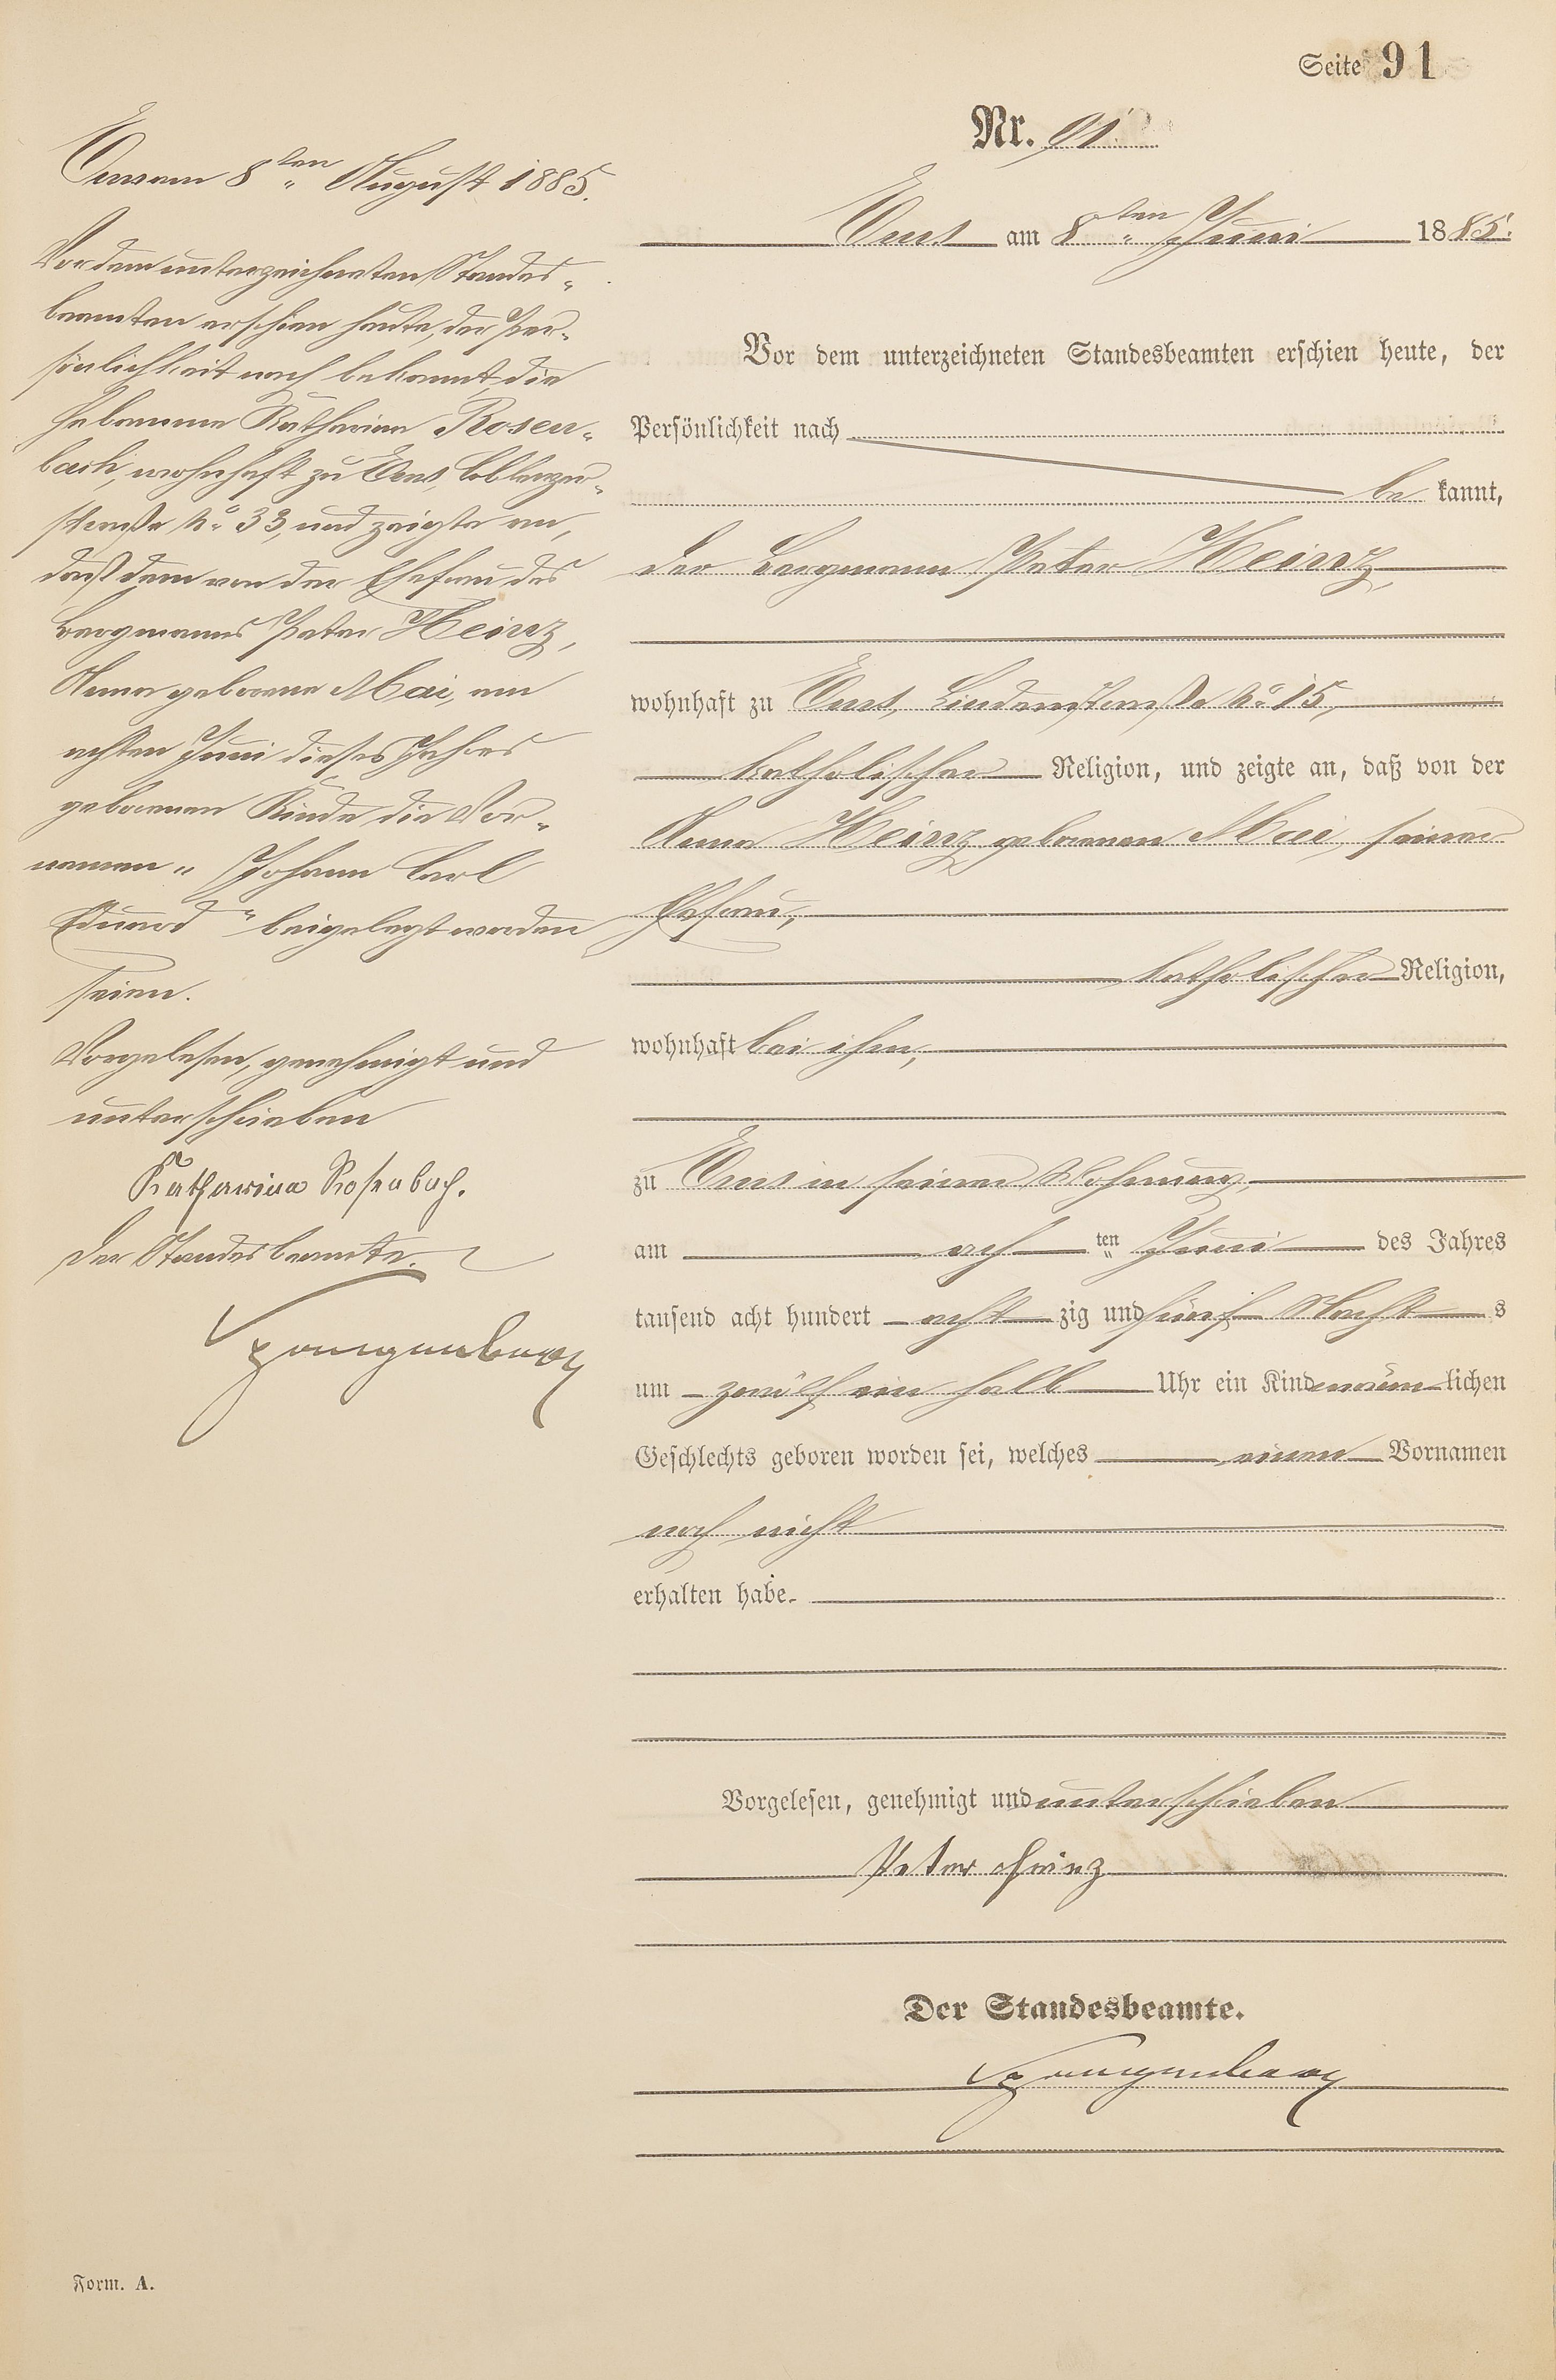 Seite 91
Nr. 91.
Ems am 8ten Juni 1885.
Vor dem unterzeichneten Standesbeamten erschien heute, der
Persönlichkeit nach
be kannt,
der Bergmann Peter Heinz,
wohnhaft zu Ems, Lindenstraße No 15,
katholischer Religion, und zeigte an, daß von der
Anna Heinz geborenen Mai, seiner
Ehefrau,
katholischer Religion,
wohnhaft bei ihm,
zu Ems in seiner Wohnung,
am ach ten Juni des Jahres
tausend acht hundert acht zig und fünf Nachts
um zwölf ein halb Uhr ein Kind männlichen
Geschlechts geboren worden sei, welches einen Vornamen
noch nicht
erhalten habe.
Vorgelesen, genehmigt und unterschrieben
Peter Heinz
Der Standesbeamte.
Ems am 8ten August 1885.
Vor dem unterzeichneten Standes-
beamten erschien heute, der Per-
sönlichkeit nach bekannt, die
Hebamme Katharina Rosen-
bach, wohnhaft zu Ems, Coblenzer-
straße No 33, und zeigte an,
daß dem von der Ehefrau des
Bergmanns Peter Heinz,
Anna geborene Mai, am
achten Juni dieses Jahres
geborenen Kinde die Vor-
namen „Johann Carl
Eduard" beigelegt worden
seien.
Vorgelesen, genehmigt und
unterschrieben
Katharina Rosenbach.
Der Standesbeamte.
Form. A.